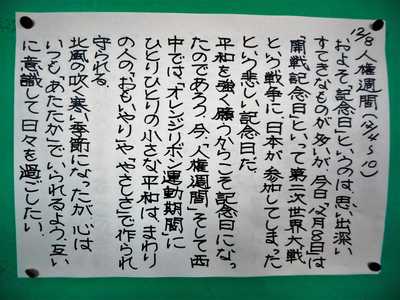 12/8 人権週間(12/4~10)
およそ「記念日」というのは、思い出深い
すてきなものが多いが、今日「12月8日」は
「開戦記念日」といって第二次世界大戦
という戦争に日本が参加してしまった
という悲しい記念日だ。
平和を強く願うからこそ記念日になっ
たのであろう。今、「人権週間」そして西
中では、「オレンジリボン運動期間」に
ひとりひとりの小さな平和は、まわり
の人の「おもいやり」や「やさしさ」で作られ
守られる。
北風の吹く寒い季節になったが、心は
いつも「あたたか」でいられるよう、互い
に意識して日々を過ごしたい。